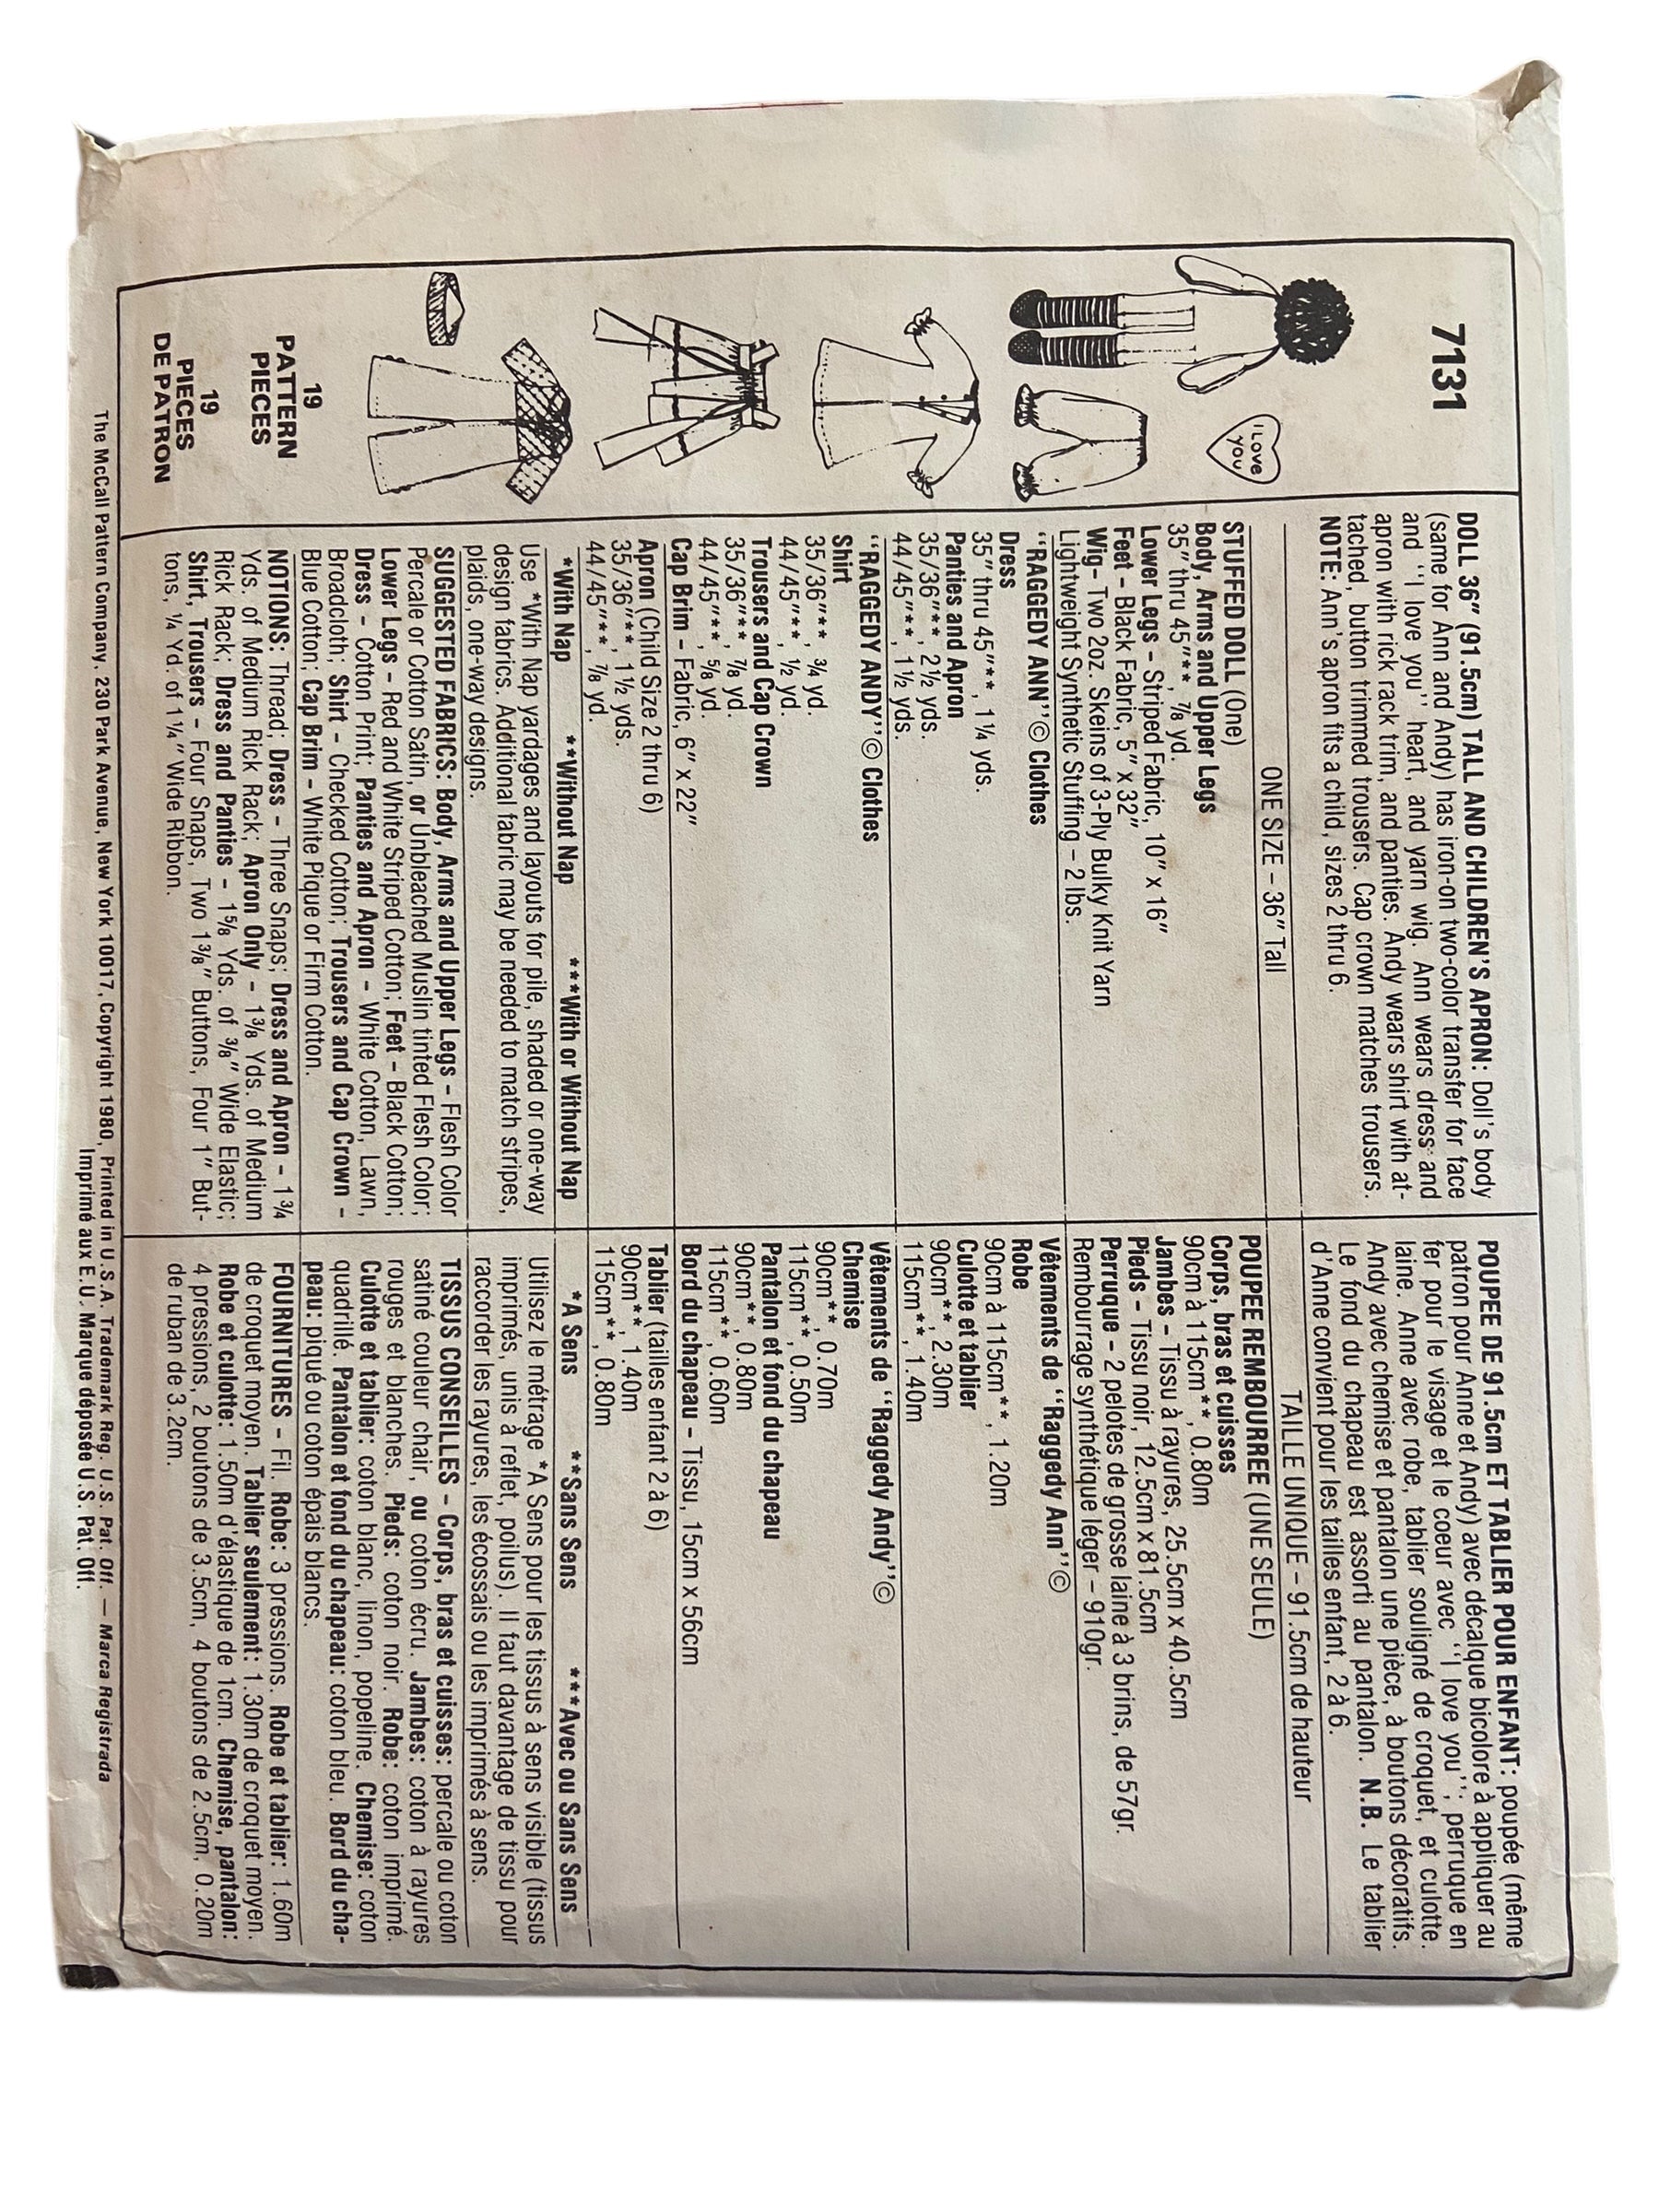 7131
I LOVE
YOU
19
PATTERN
PIECES
19
PIECES
DE PATRON
DOLL 36″ (91.5cm) TALL AND CHILDREN'S APRON: Doll's body
(same for Ann and Andy) has iron-on two-color transfer for face
and ‘‘I love you’’ heart, and yarn wig. Ann wears dress and
apron with rick rack trim, and panties. Andy wears shirt with at-
tached, button trimmed trousers. Cap crown matches trousers.
NOTE: Ann's apron fits a child, sizes 2 thru 6.
ONE SIZE – 36″ Tall
STUFFED DOLL (One)
Body, Arms and Upper Legs
35″ thru 45″**, ⅞ yd.
Lower Legs – Striped Fabric, 10″ x 16″
Feet – Black Fabric, 5″ x 32″
Wig– Two 2oz. Skeins of 3-Ply Bulky Knit Yarn
Lightweight Synthetic Stuffing – 2 lbs.
‘‘RAGGEDY ANN’’© Clothes
Dress
35″ thru 45″**, 1¼ yds.
Panties and Apron
35/36″**, 2½ yds.
44/45″**, 1½ yds.
‘‘RAGGEDY ANDY’’© Clothes
Shirt
35/36″**, ¾ yd.
44/45″**, ½ yd.
Trousers and Cap Crown
35/36″**, ⅞ yd.
44/45″**, ⅝ yd.
Cap Brim – Fabric, 6″ x 22″
Apron (Child Size 2 thru 6)
35/36″**, 1½ yds.
44/45″**, ⅞ yd.
*With Nap **Without Nap ***With or Without Nap
Use *With Nap yardages and layouts for pile, shaded or one-way
design fabrics. Additional fabric may be needed to match stripes,
plaids, one-way designs.
SUGGESTED FABRICS: Body, Arms and Upper Legs – Flesh Color
Percale or Cotton Satin, or Unbleached Muslin tinted Flesh Color;
Lower Legs – Red and White Striped Cotton; Feet – Black Cotton;
Dress – Cotton Print; Panties and Apron – White Cotton, Lawn,
Broadcloth; Shirt – Checked Cotton; Trousers and Cap Crown –
Blue Cotton; Cap Brim – White Pique or Firm Cotton.
NOTIONS: Thread; Dress – Three Snaps; Dress and Apron – 1¾
Yds. of Medium Rick Rack; Apron Only – 1⅜ Yds. of Medium
Rick Rack; Dress and Panties – 1⅝ Yds. of ⅜″ Wide Elastic;
Shirt, Trousers – Four Snaps, Two 1⅜″ Buttons, Four 1″ But-
tons, ¼ Yd. of 1¼″ Wide Ribbon.
POUPEE DE 91.5cm ET TABLIER POUR ENFANT: poupée (même
patron pour Anne et Andy) avec décalque bicolore à appliquer au
fer pour le visage et le coeur avec ‘‘I love you’’; perruque en
laine. Anne avec robe, tablier souligné de croquet, et culotte.
Andy avec chemise et pantalon une pièce, à boutons décoratifs.
Le fond du chapeau est assorti au pantalon. N.B. Le tablier
d'Anne convient pour les tailles enfant, 2 à 6.
TAILLE UNIQUE – 91.5cm de hauteur
POUPEE REMBOURREE (UNE SEULE)
Corps, bras et cuisses
90cm à 115cm**, 0.80m
Jambes – Tissu à rayures, 25.5cm x 40.5cm
Pieds – Tissu noir, 12.5cm x 81.5cm
Perruque – 2 pelotes de grosse laine à 3 brins, de 57gr.
Rembourrage synthétique léger – 910gr.
Vêtements de ‘‘Raggedy Ann’’©
Robe
90cm à 115cm**, 1.20m
Culotte et tablier
90cm**, 2.30m
115cm**, 1.40m
Vêtements de ‘‘Raggedy Andy’’©
Chemise
90cm**, 0.70m
115cm**, 0.50m
Pantalon et fond du chapeau
90cm**, 0.80m
115cm**, 0.60m
Bord du chapeau – Tissu, 15cm x 56cm
Tablier (tailles enfant 2 à 6)
90cm**, 1.40m
115cm**, 0.80m
*A Sens **Sans Sens ***Avec ou Sans Sens
Utilisez le métrage *A Sens pour les tissus à sens visible (tissus
imprimés, unis à reflet, poilus). Il faut davantage de tissu pour
raccorder les rayures, les écossais ou les imprimés à sens.
TISSUS CONSEILLES – Corps, bras et cuisses: percale ou coton
satiné couleur chair, ou coton écru. Jambes: coton à rayures
rouges et blanches. Pieds: coton noir. Robe: coton imprimé.
Culotte et tablier: coton blanc, linon, popeline. Chemise: coton
quadrillé. Pantalon et fond du chapeau: coton bleu. Bord du cha-
peau: piqué ou coton épais blancs.
FOURNITURES – Fil. Robe: 3 pressions. Robe et tablier: 1.60m
de croquet moyen. Tablier seulement: 1.30m de croquet moyen.
Robe et culotte: 1.50m d'élastique de 1cm. Chemise, pantalon:
4 pressions, 2 boutons de 3.5cm, 4 boutons de 2.5cm, 0.20m
de ruban de 3.2cm.
The McCall Pattern Company. 230 Park Avenue, New York 10017, Copyright 1980, Printed in U.S.A. Trademark Reg. U.S. Pat. Off. — Marca Registrada
Imprimé aux E.U. Marque déposée U.S. Pat. Off.